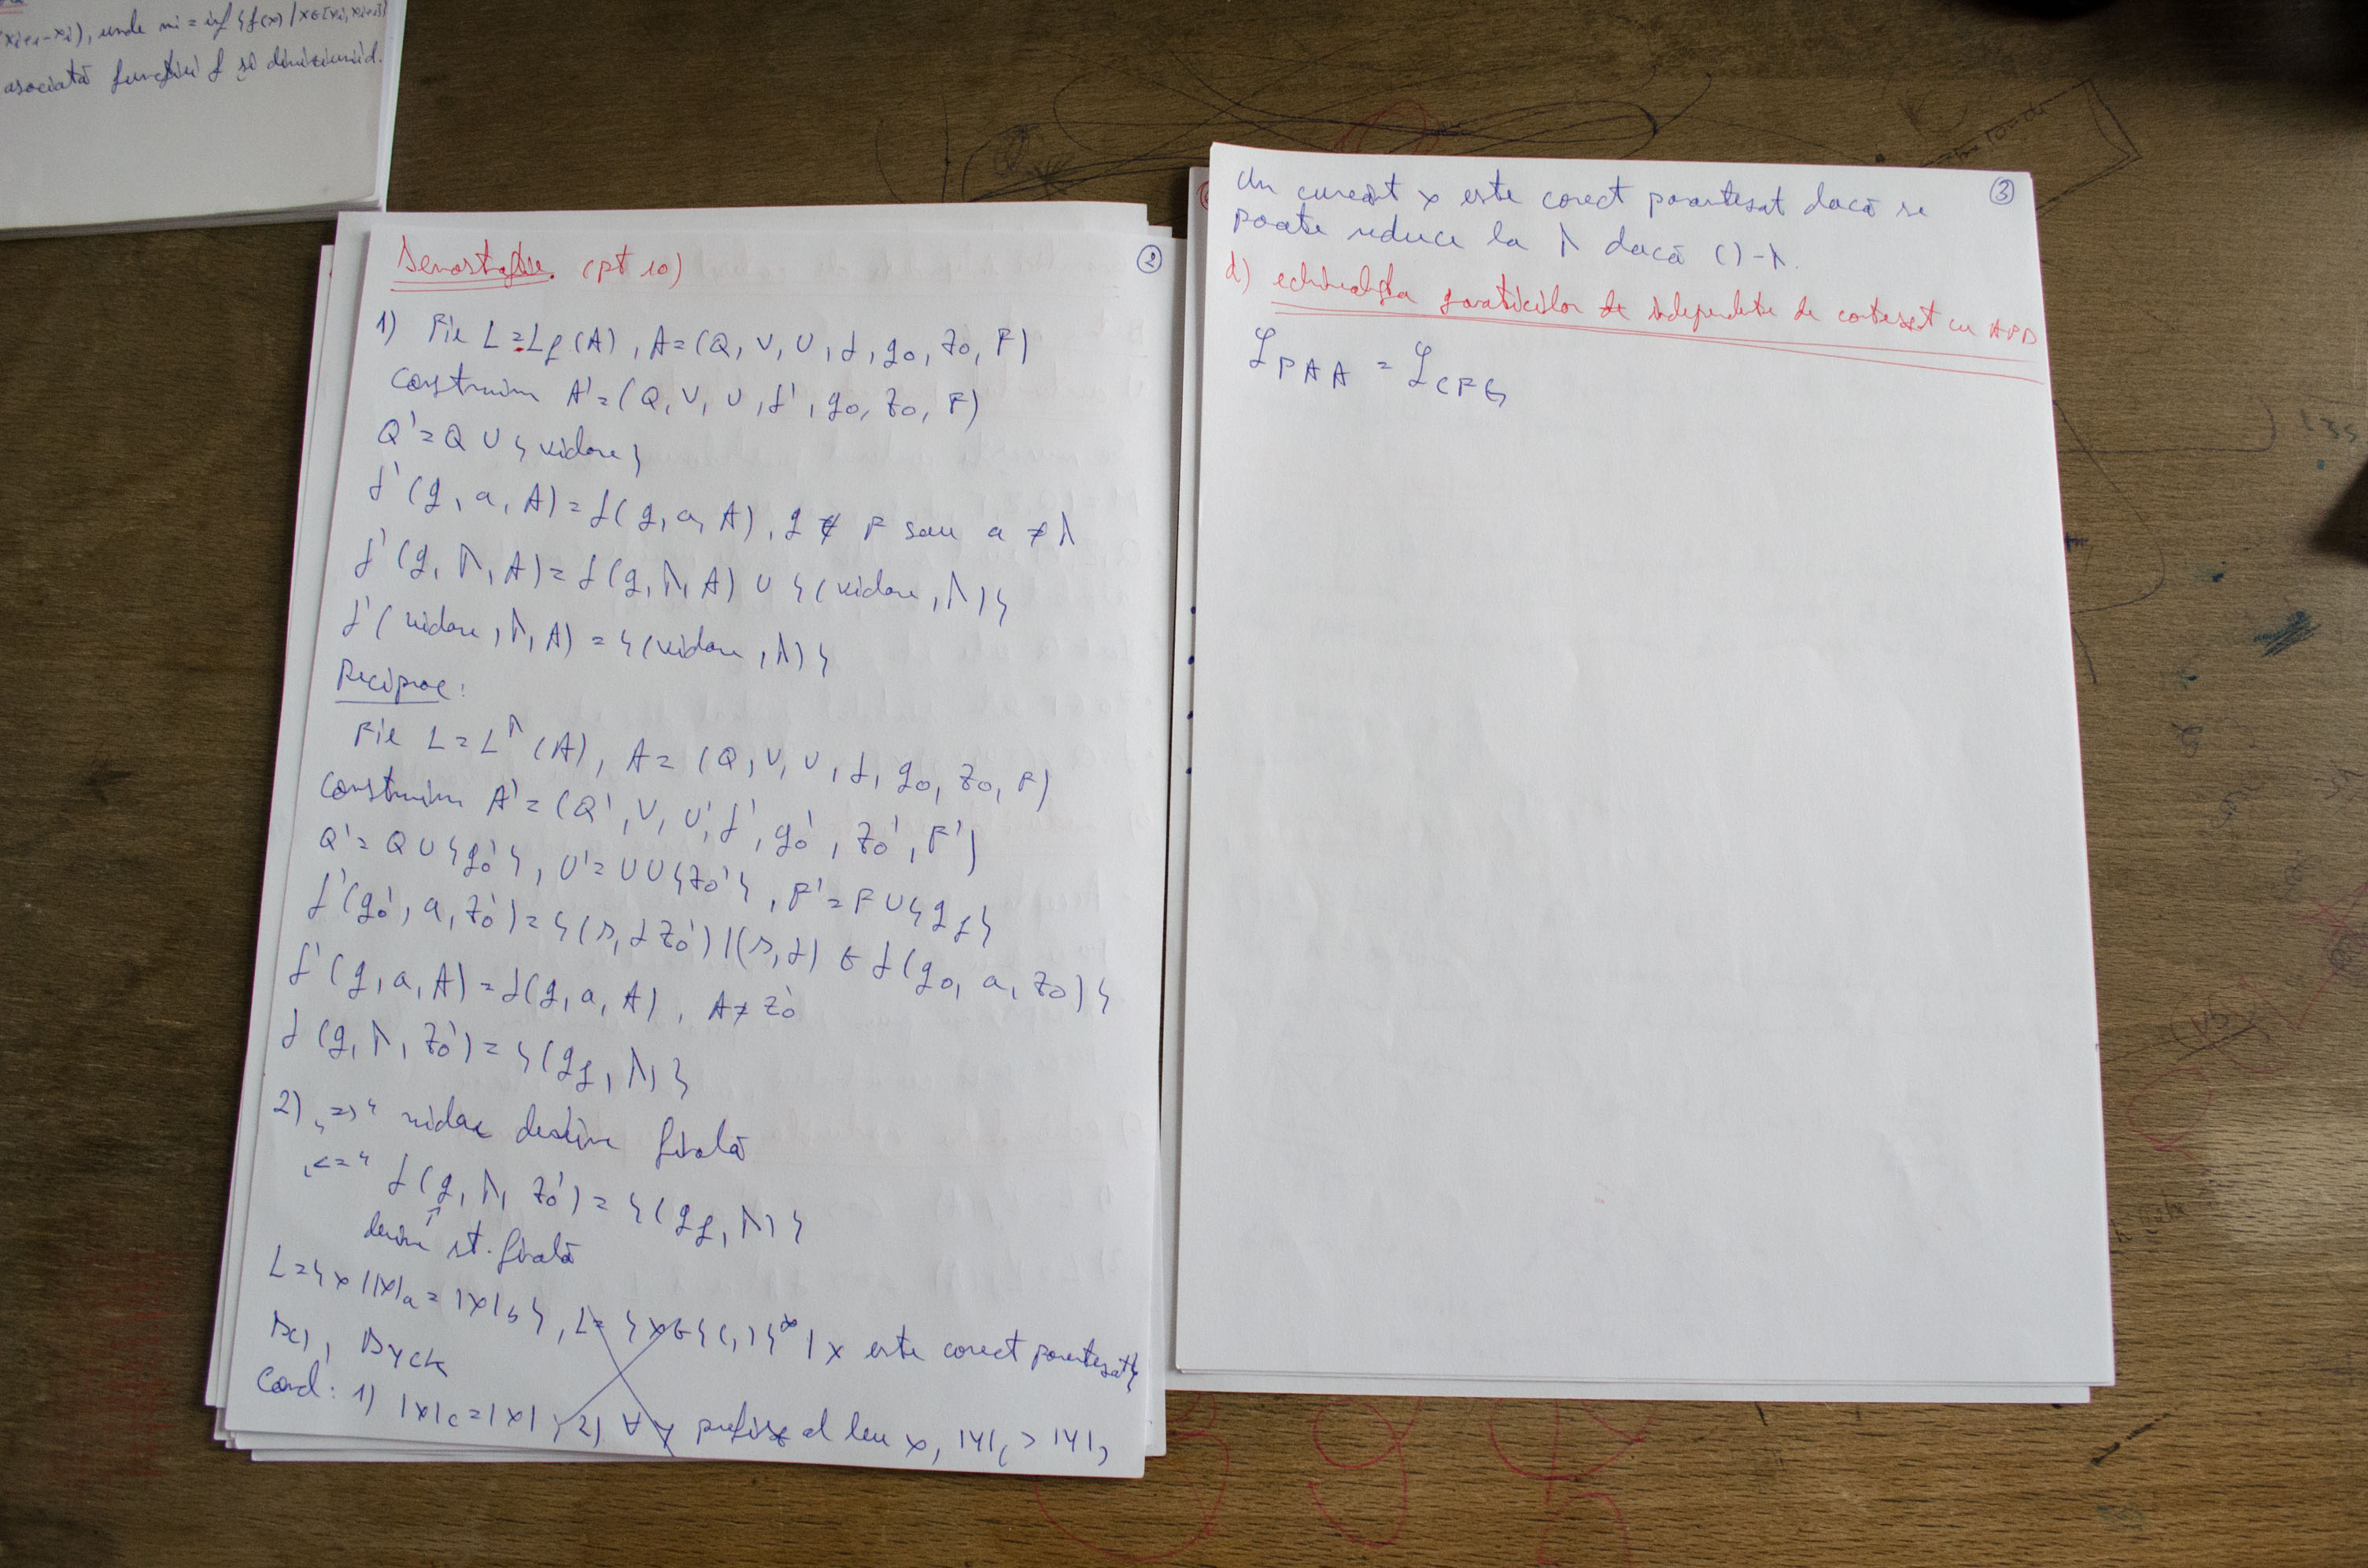 xi+1-xi), unde mi = inf {f(x) / x∈[xi, xi+1]}
asociată funcției f și diviziunii d.
Demostrație. (pt 10)
②
1) Fie L = Lf (A), A = (Q, V, U, f, q0, z0, F)
Construim A' = (Q, V, U, f', q0, z0, F)
Q' = Q ∪ {vidare}
f'(q, a, A) = f(q, a, A), q ∉ F sau a ≠ λ
f'(q, λ, A) = f(q, λ, A) ∪ {(vidare, λ)}
f'(vidare, λ, A) = {(vidare, λ)}
Reciproc:
Fie L = L^λ (A), A = (Q, V, U, f, q0, z0, F)
Construim A' = (Q', V, U', f', q0', z0', F')
Q' = Q ∪ {q0'}, U' = U ∪ {z0'}, F' = F ∪ {qf}
f'(q0', a, z0') = {(s, αz0') | (s, α) ∈ f(q0, a, z0)}
f'(q, a, A) = f(q, a, A), A ≠ z0'
f(q, λ, z0') = {(qf, λ)}
2) „=>" vidare devine finală
„<=" f(q, λ, z0') = {(qf, λ)}
devine st. finală
L = {x | |x|a = |x|b}, L = {x ∈ {(, )}* | x este corect parantezat}
Dyck
Cond: 1) |x|( = |x|) 2) ∀ y prefix al lui x, |y|( > |y|)
③
Un cuvânt x este corect parantezat dacă se
poate reduce la λ dacă () - λ.
d) echivalența gramaticilor de independente de context cu APD
ℒPAA = ℒCFG